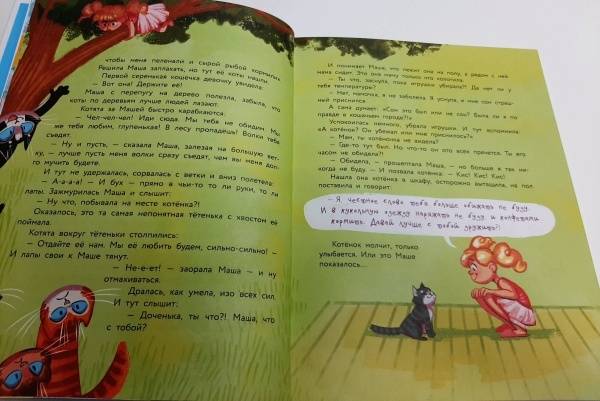 чтобы меня пеленали и сырой рыбой кормили.
Решила Маша заплакать, но тут её коты нашли.
Первой серенькая кошечка девочку увидела:
— Вот она! Держите её!
Маша с перепугу на дерево полезла, забыла, что
коты по деревьям лучше людей лазают.
Котята за Машей быстро карабкаются.
— Чел-чел-чел! Иди сюда. Мы тебя не обидим. Мы
же тебя любим, глупенькая! В лесу пропадёшь! Волки тебя
съедят.
— Ну и пусть, — сказала Маша, залезая на большую вет-
ку, — лучше пусть меня волки сразу съедят, чем вы меня дол-
го мучить будете.
И тут не удержалась, сорвалась с ветки и вниз полетела:
— А-а-а-а! — И бух — прямо в чьи-то то ли руки, то ли
лапы. Зажмурилась Маша и слышит:
— Ну что, побывала на месте котёнка?!
Оказалось, это та самая непонятная тётенька с хвостом её
поймала.
Котята вокруг тётеньки столпились:
— Отдайте её нам. Мы её любить будем, сильно-сильно! —
И лапы свои к Маше тянут.
— Не-е-ет! — заорала Маша — и ну
отмахиваться.
Дралась, как умела, изо всех сил.
И тут слышит:
— Доченька, ты что?! Маша, что
с тобой?
И понимает Маша, что лежит она на полу, а рядом с ней
мама сидит. Это она маму только что колотила.
— Ты что, заснула, пока игрушки убирала? Да нет ли у
тебя температуры?
— Нет, мамочка, я не заболела. Я уснула, и мне сон страш-
ный приснился.
А сама думает: «Сон это был или не сон? Была ли я по
правде в кошачьем городе?!»
Успокоилась немного, убрала игрушки. И тут вспомнила:
«А котёнок? Он убежал или мне приснилось?»
— Мам, ты котёночка не видела?
— Где-то тут был. Но что-то он это всех прячется. Ты его
часом не обидела?!
— Обидела, — прошептала Маша, — но больше я так ни-
когда не буду. — И позвала котёнка: — Кис! Кис! Кис!
Нашла она котёнка в шкафу, осторожно вытащила, на пол
поставила и говорит:
— Я честное слово тебя больше обижать не буду.
И в кукольную одежду наряжать не буду и конфетами
кормить. Давай лучше с тобой дружить?!
Котёнок молчит, только
улыбается. Или это Маше
показалось...